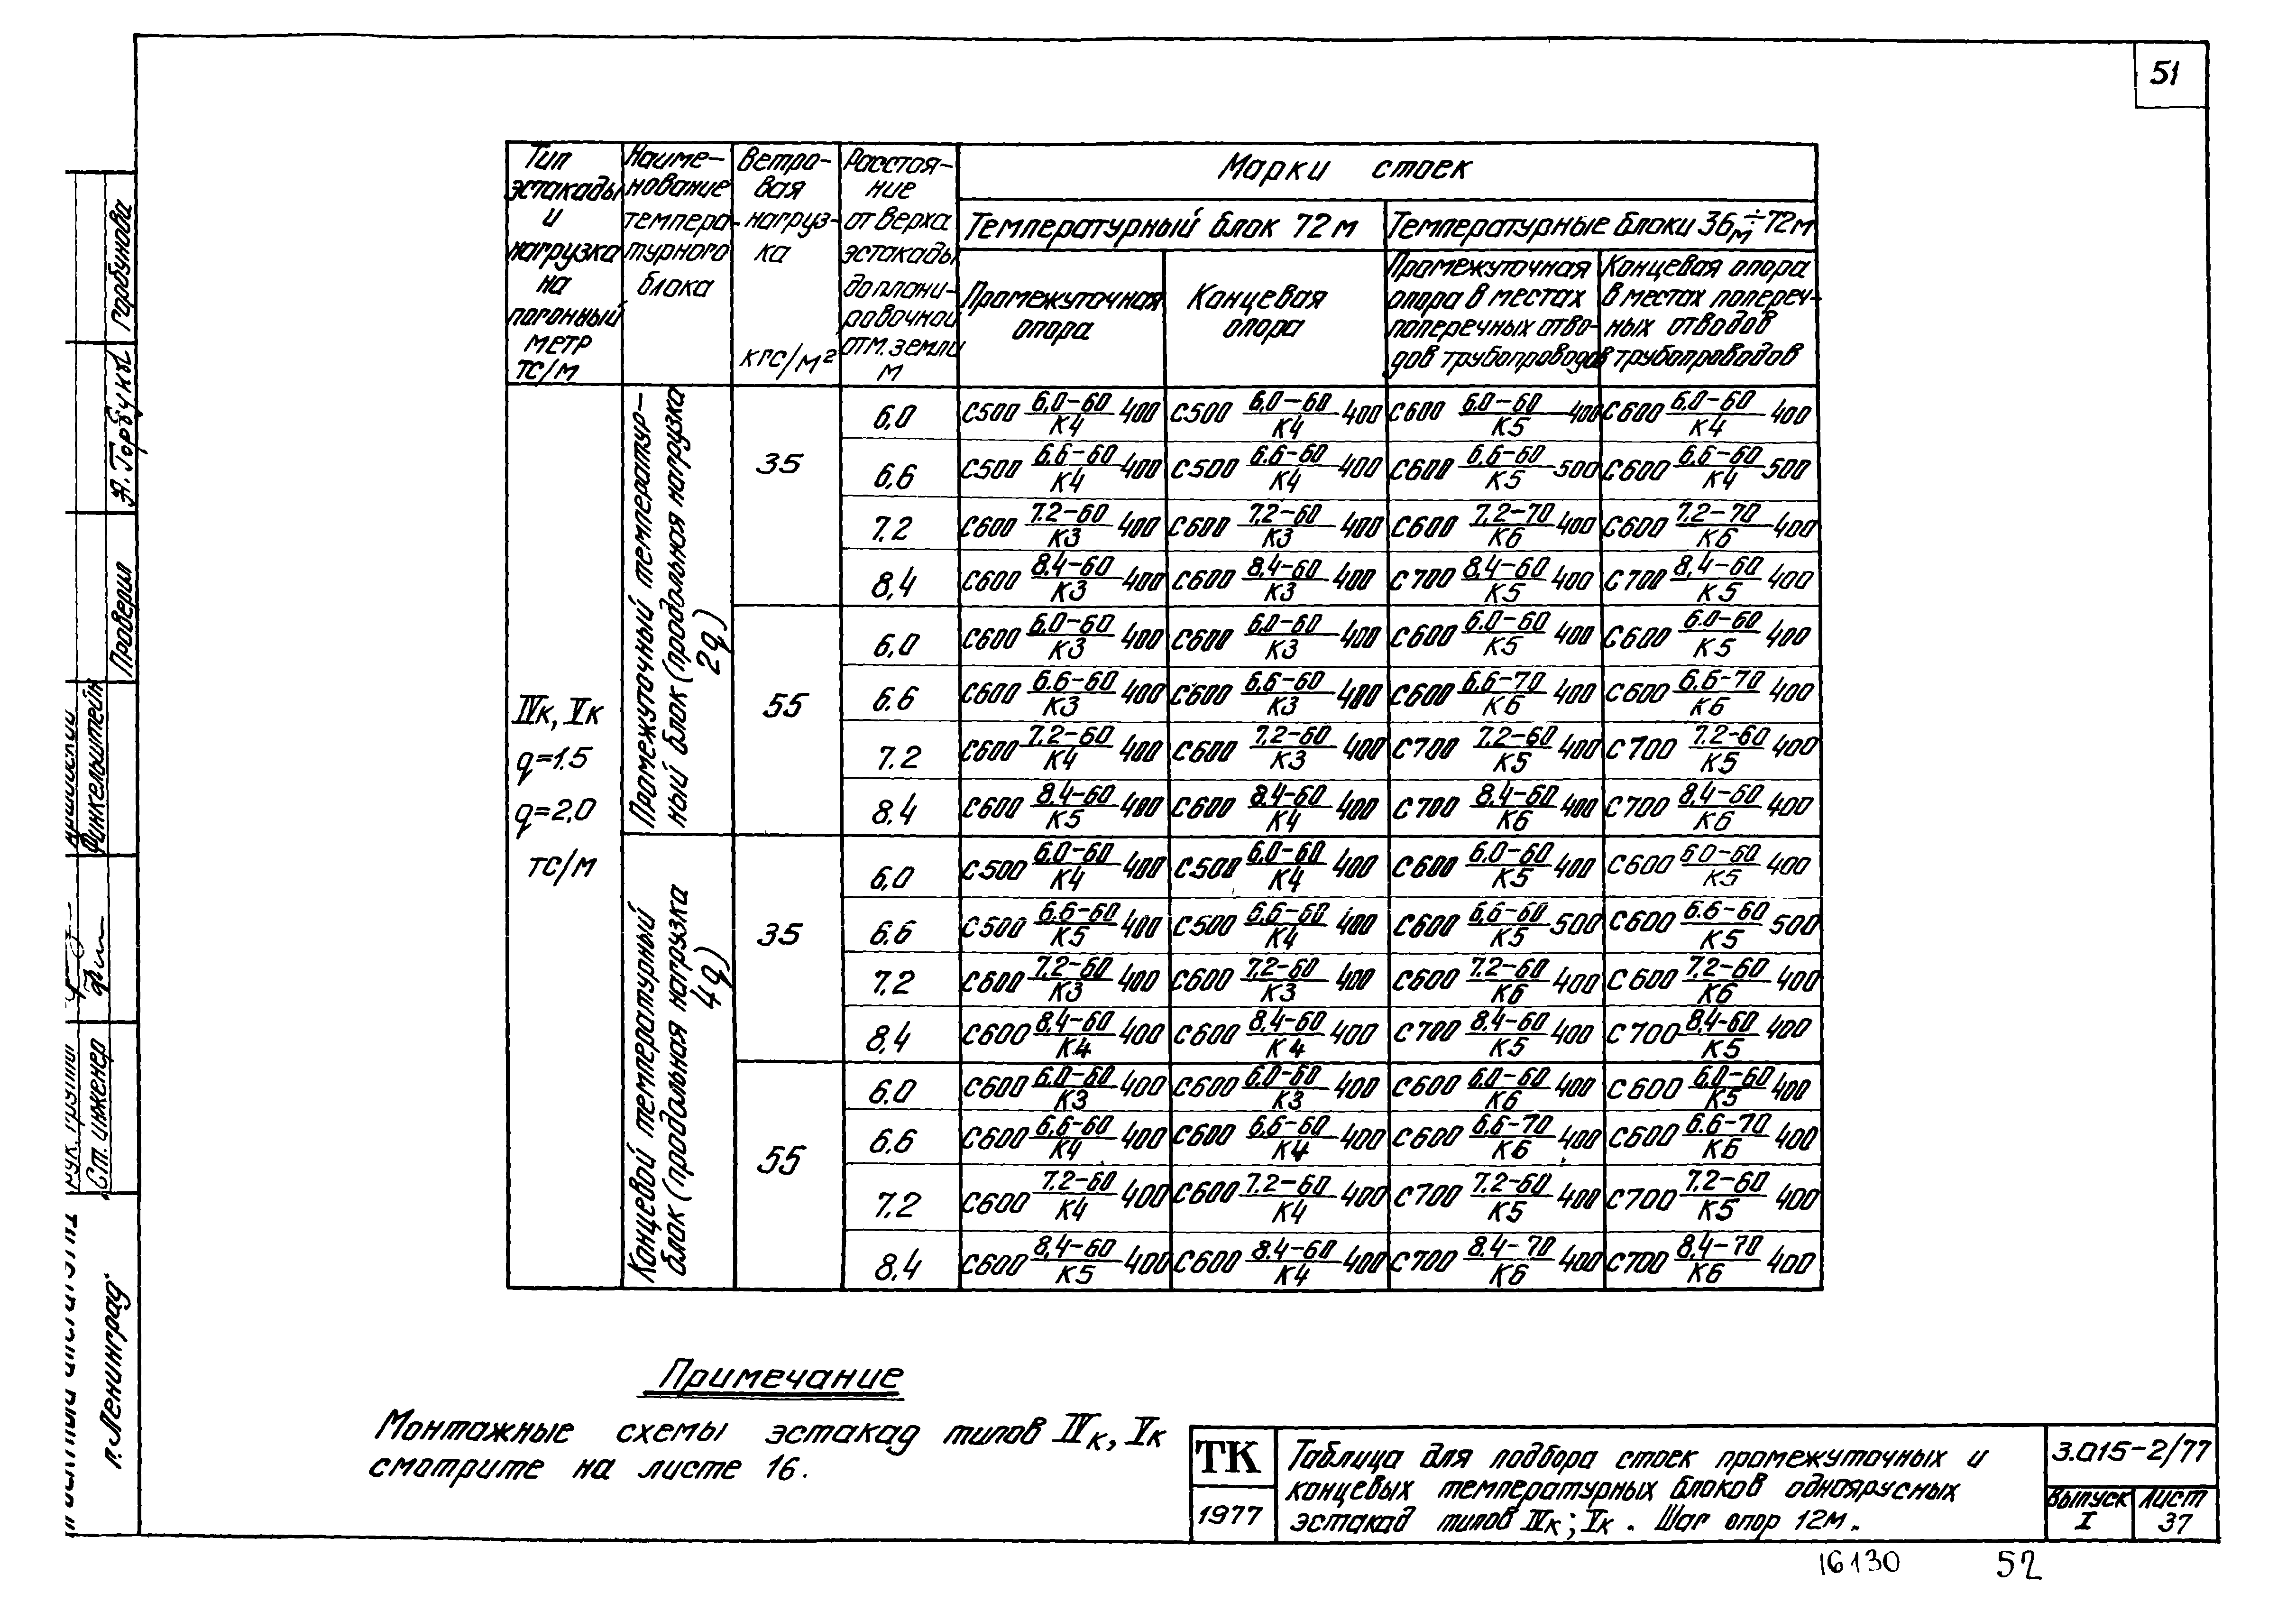 51
Тип эстакады и нагрузка на погонный метр тс/м
Наиме-нование темпера-турного блока
Ветро-вая нагруз-ка кгс/м²
Расстоя-ние от верха эстакады до плани-ровочной отм. земли м
Марки стоек
Температурный блок 72 м
Температурные блоки 36м÷72м
Промежуточная опора
Концевая опора
Промежуточная опора в местах поперечных отво-дов трубопроводов
Концевая опора в местах попереч-ных отводов трубопроводов
IVк, Vк
q=1.5
q=2,0
тс/м
Промежуточный температур-ный блок (продольная нагрузка 2q)
35
6,0 С500 6,0-60/К4 400 С500 6,0-60/К4 400 С600 6,0-60/К5 400 С600 6,0-60/К4 400
6,6 С500 6,6-60/К4 400 С500 6,6-60/К4 400 С600 6,6-60/К5 500 С600 6,6-60/К4 500
7.2 С600 7.2-60/К3 400 С600 7,2-60/К3 400 С600 7,2-70/К6 400 С600 7.2-70/К6 400
8,4 С600 8,4-60/К3 400 С600 8,4-60/К3 400 С700 8,4-60/К5 400 С700 8,4-60/К5 400
55
6,0 С600 6,0-60/К3 400 С600 6,0-60/К3 400 С600 6,0-60/К5 400 С600 6.0-60/К5 400
6.6 С600 6.6-60/К3 400 С600 6,6-60/К3 400 С600 6,6-70/К6 400 С600 6,6-70/К6 400
7.2 С600 7,2-60/К4 400 С600 7,2-60/К3 400 С700 7,2-60/К5 400 С700 7,2-60/К5 400
8.4 С600 8.4-60/К5 400 С600 8.4-60/К4 400 С700 8,4-60/К6 400 С700 8,4-60/К6 400
Концевой температурный блок (продольная нагрузка 4q)
35
6,0 С500 6,0-60/К4 400 С500 6,0-60/К4 400 С600 6,0-60/К5 400 С600 6,0-60/К5 400
6,6 С500 6.6-60/К5 400 С500 6,6-60/К4 400 С600 6,6-60/К5 500 С600 6.6-60/К5 500
7.2 С600 7,2-60/К3 400 С600 7,2-60/К3 400 С600 7,2-60/К6 400 С600 7,2-60/К6 400
8,4 С600 8,4-60/К4 400 С600 8,4-60/К4 400 С700 8,4-60/К5 400 С700 8,4-60/К5 400
55
6.0 С600 6,0-60/К3 400 С600 6,0-60/К3 400 С600 6,0-60/К6 400 С600 6,0-60/К5 400
6.6 С600 6,6-60/К4 400 С600 6,6-60/К4 400 С600 6,6-70/К6 400 С600 6.6-70/К6 400
7.2 С600 7.2-60/К4 400 С600 7.2-60/К4 400 С700 7.2-60/К5 400 С700 7.2-60/К5 400
8.4 С600 8,4-60/К5 400 С600 8.4-60/К4 400 С700 8.4-70/К6 400 С700 8,4-70/К6 400
Примечание
Монтажные схемы эстакад типов IVк, Vк
смотрите на листе 16.
ТК
1977
Таблица для подбора стоек промежуточных и
концевых температурных блоков одноярусных
эстакад типов IVк; Vк. Шаг опор 12м.
3.015-2/77
Выпуск I
Лист 37
16130
52
Горбунова
Проверил
Финкельштейн
Ст. инженер
г. Ленинград